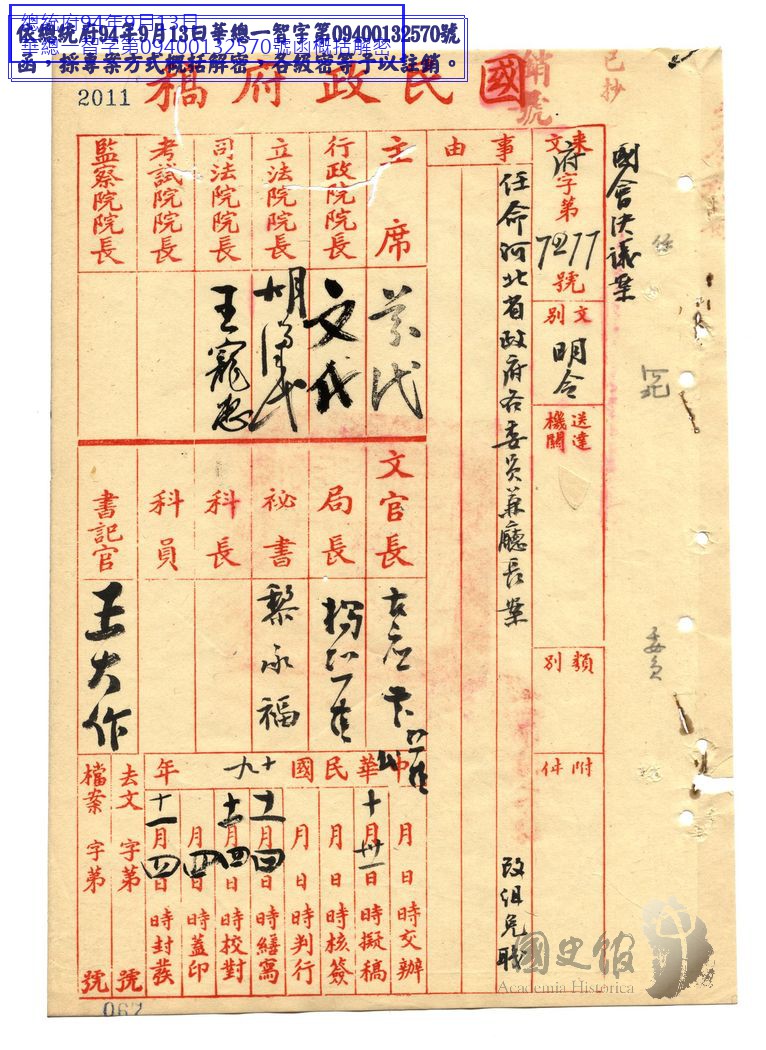 總統府94年9月13月
華總一智字第09400132570號函概括解密
依總統府94年9月13日華總一智字第09400132570號
函,採專案方式概括解密、各級密等予以註銷。
2011
國民政府稿
銷號
已抄
國會決議案
來文 府字第7277號
文別 明令
送達機關
類別
附件
事由
任命河北省政府各委員兼廳長案
改組免職
主席
行政院院長
立法院院長
司法院院長
考試院院長
監察院院長
文代
胡漢代
王寵惠
文官長
局長
祕書
科長
科員
書記官
黎承福
王大作
委員
中華民國十九年
月日時交辦
十月卅一日時擬稿
月日時核簽
月日時判行
十一月四日時繕寫
十一月四日時校對
月四日時蓋印
十一月四日時封發
去文 字第 號
檔案 字第 號
062
國史館
Academia Historica